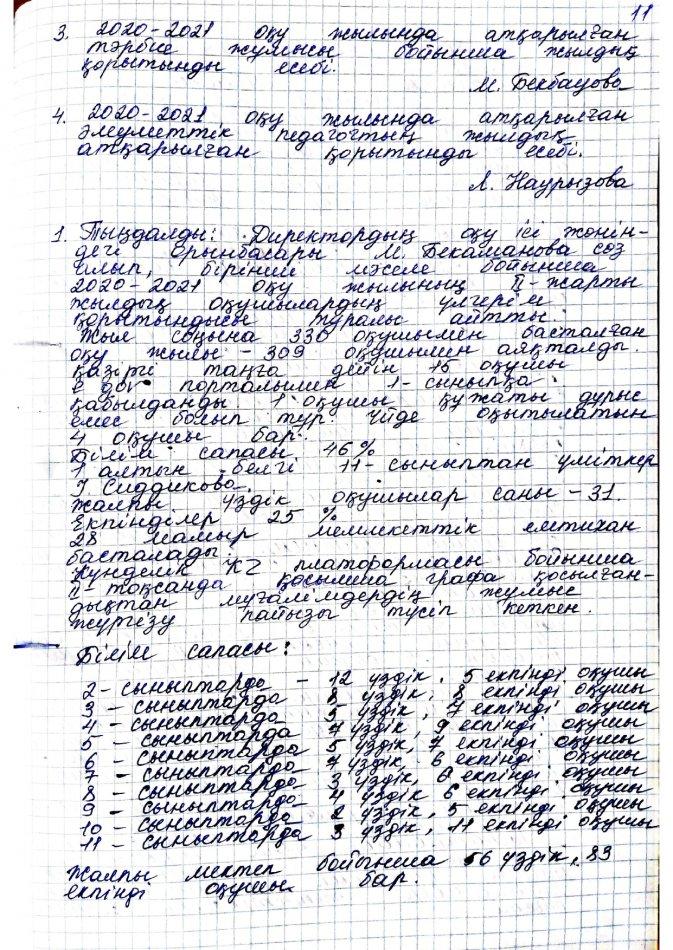 11
3. 2020-2021 оқу жылында атқарылған
тәрбие жұмысы бойынша жылдық
қорытынды есебі.
М. Бекбауова
4. 2020-2021 оқу жылында атқарылған
әлеуметтік педагогтың жылдық
атқарылған қорытынды есебі.
Л. Наурызова
1. Тыңдалды: Директордың оқу ісі жөнін-
дегі орынбасары М. Бекаманова сөз
алып, бірінші мәселе бойынша
2020-2021 оқу жылының II-жарты
жылдық оқушылардың үлгерім
қорытындысы туралы айтты.
Жыл соңына 336 оқушымен басталған
оқу жылы - 309 оқушымен аяқталды.
Қазіргі таңға дейін 15 оқушы
e gov порталымен 1-сыныпқа
қабылданды 1 оқушы құжаты дұрыс
емес болып тұр. Үйде оқытылатын
4 оқушы бар.
Білім сапасы 46%
1 алтын белгі 11-сыныптан үміткер
Сиддикова.
Жалпы үздік оқушылар саны - 31.
Екпінділер 25 %
28 мамыр мемлекеттік емтихан
басталады.
Күнделік KZ платформасы бойынша
II-тоқсанда қосымша графа қосылған-
дықтан мұғалімдердің жұмыс
жүргізу пайызы түсіп кеткен.
Білім сапасы:
2-сыныптарда - 12 үздік, 5 екпінді оқушы
3-сыныптарда 8 үздік, 8 екпінді оқушы
4-сыныптарда 5 үздік, 7 екпінді оқушы
5-сыныптарда 7 үздік, 9 екпінді оқушы
6-сыныптарда 5 үздік, 7 екпінді оқушы
7-сыныптарда 7 үздік 6 екпінді оқушы
8-сыныптарда 3 үздік, 6 екпінді оқушы
9-сыныптарда 4 үздік 6 екпінді оқушы
10-сыныптарда 2 үздік, 5 екпінді оқушы
11-сыныптарда 3 үздік, 11 екпінді оқушы
Жалпы мектеп бойынша 56 үздік, 83
екпінді оқушы бар.